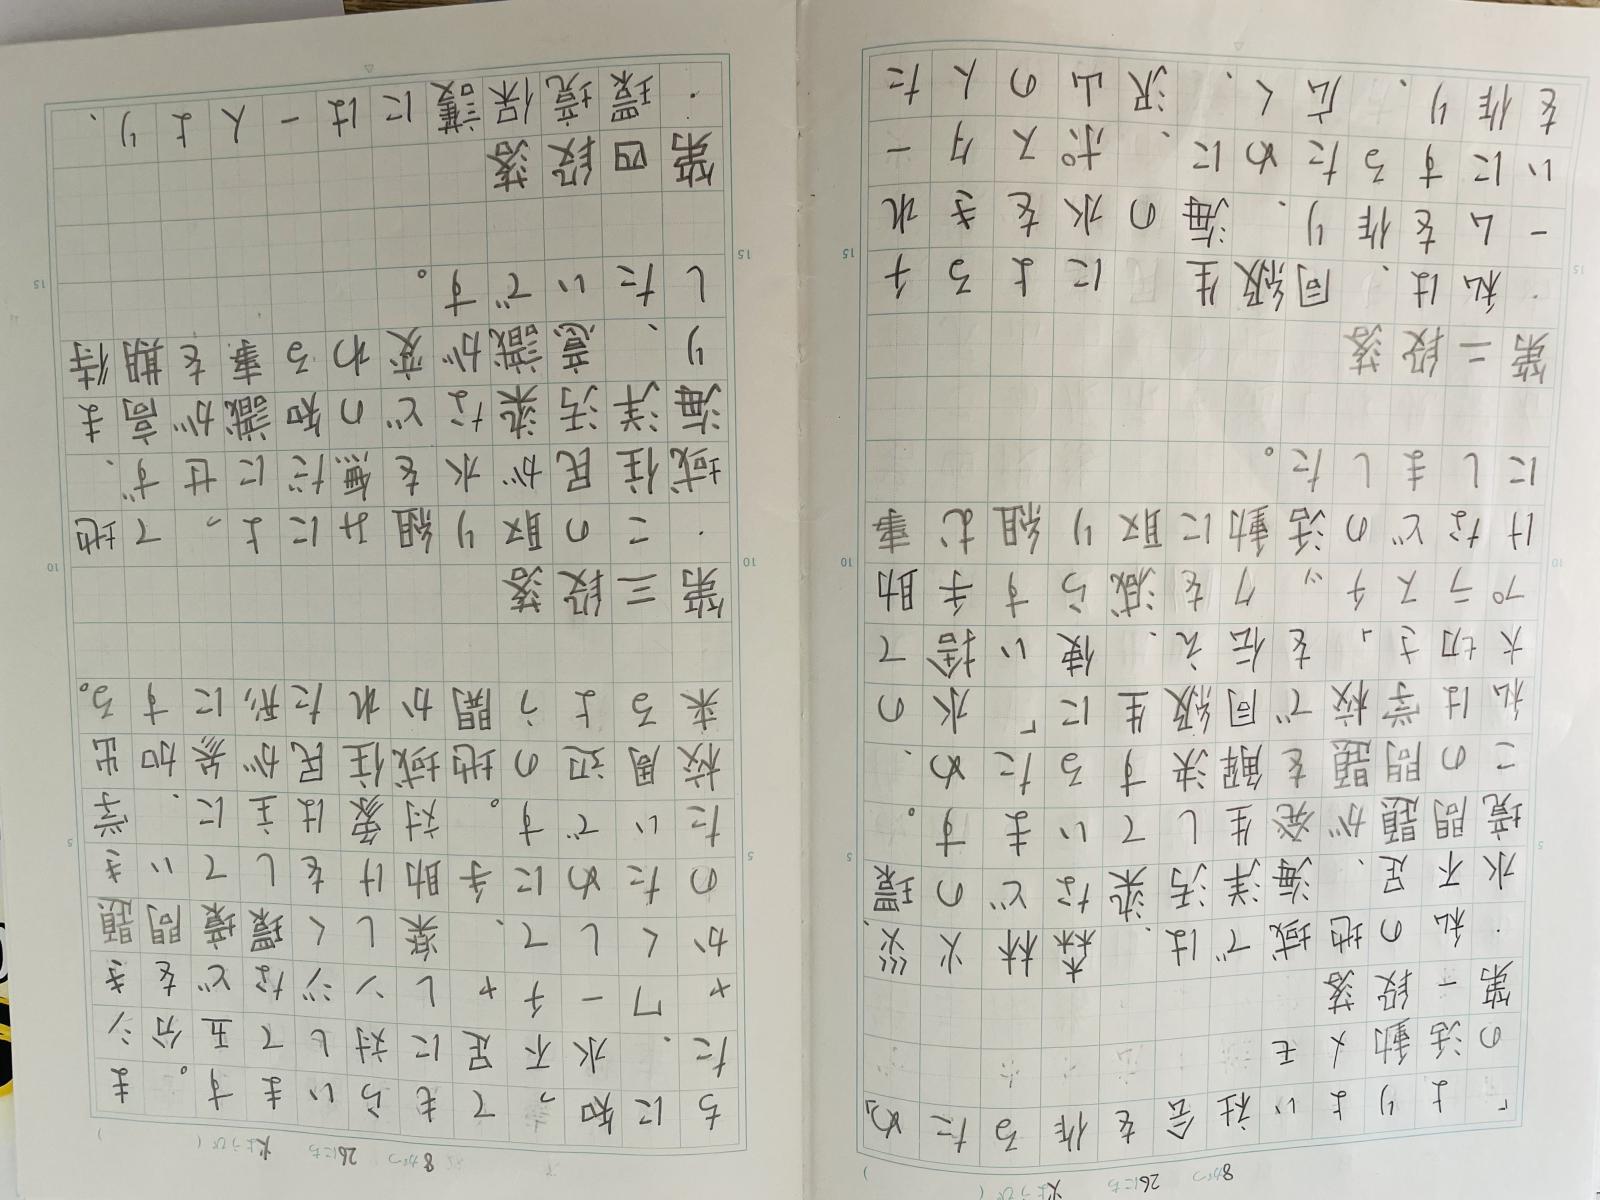 8がつ 26にち 火ようび
「よりよい社会を作るため」
の活動メモ
第一段落
・私の地域では、森林火災、
水不足、海洋汚染などの環
境問題が発生しています。
この問題を解決するため、
私は学校で同級生に「水の
大切さ」を伝え、使い捨て
プラスチックを減らす手助
けなどの活動に取り組む事
にしました。
第二段落
・私は、同級生によるチ
ームを作り、海の水をきれ
いにするために、ポスター
を作り、広く、沢山の人た
8がつ 26にち 火ようび
ちに知ってもらいます。ま
た、水不足に対して五分シ
ャワーチャレンジなどをき
かくして、楽しく環境問題
のために手助けをしていき
たいです。対象は主に、学
校周辺の地域住民が参加出
来るよう開かれた形にする。
第三段落
・この取り組みによって地
域住民が水を無だにせず、
海洋汚染などの知識が高ま
り、意識が変わる事を期待
したいです。
第四段落
・環境保護には一人より、